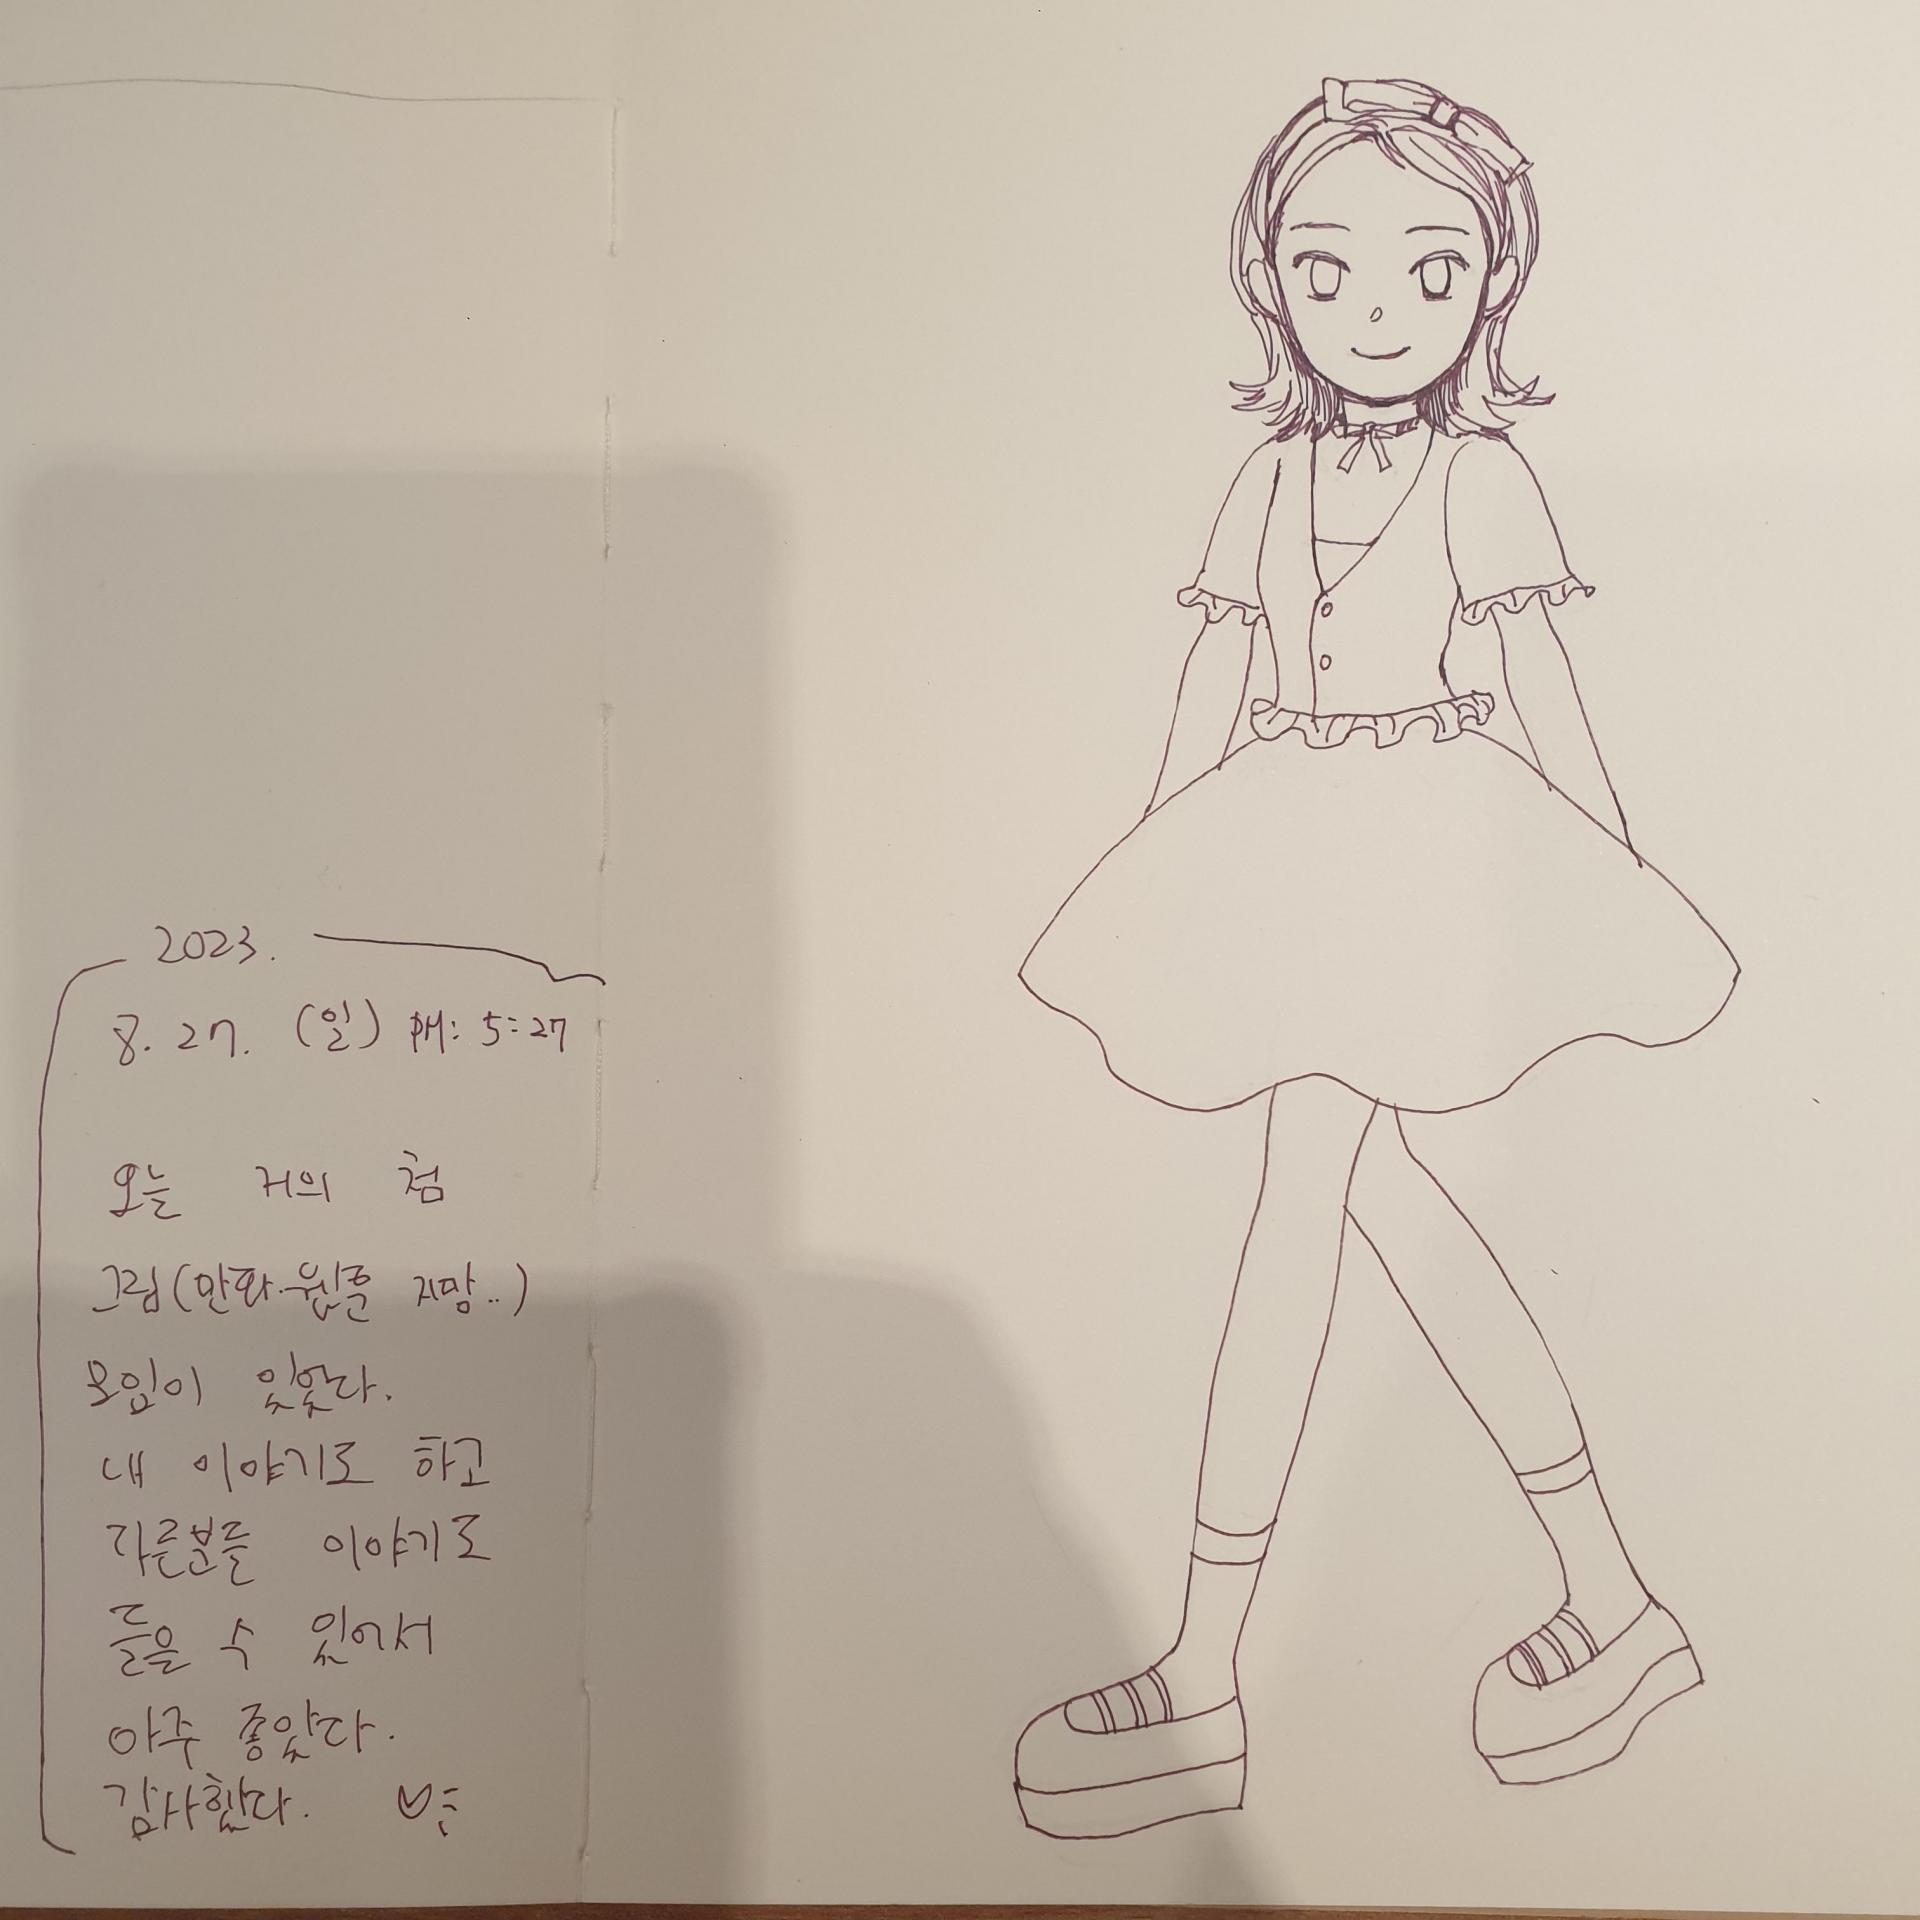 2023.
8. 27. (일) PM: 5:27
오늘 거의 첨
그림(만화.웹툰 지망..)
모임이 있었다.
내 이야기도 하고
다른분들 이야기도
들을 수 있어서
아주 좋았다.
감사했다. ♡